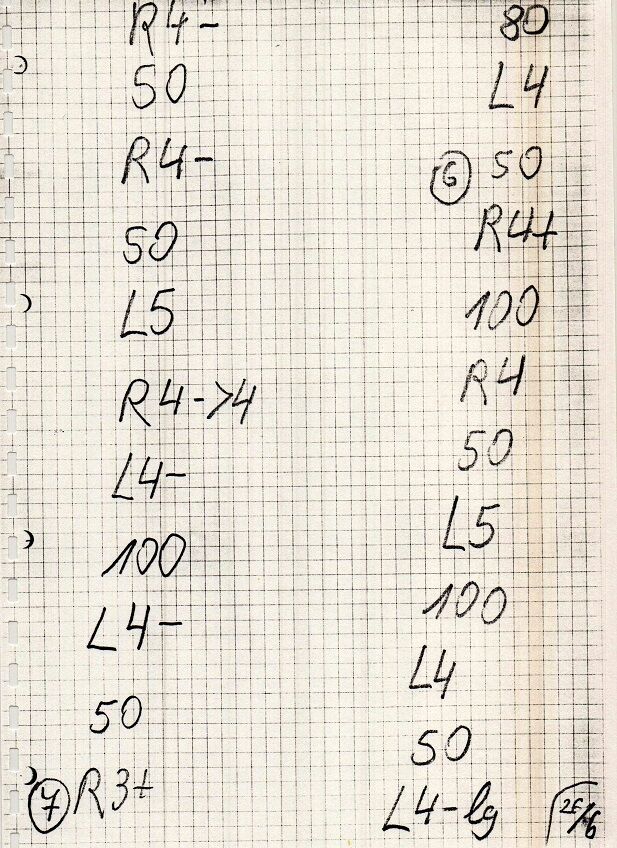 R4-
50
R4-
50
L5
R4->4
L4-
100
L4-
50
7 R3+
80
L4
6 50
R4+
100
R4
50
L5
100
L4
50
L4-lg